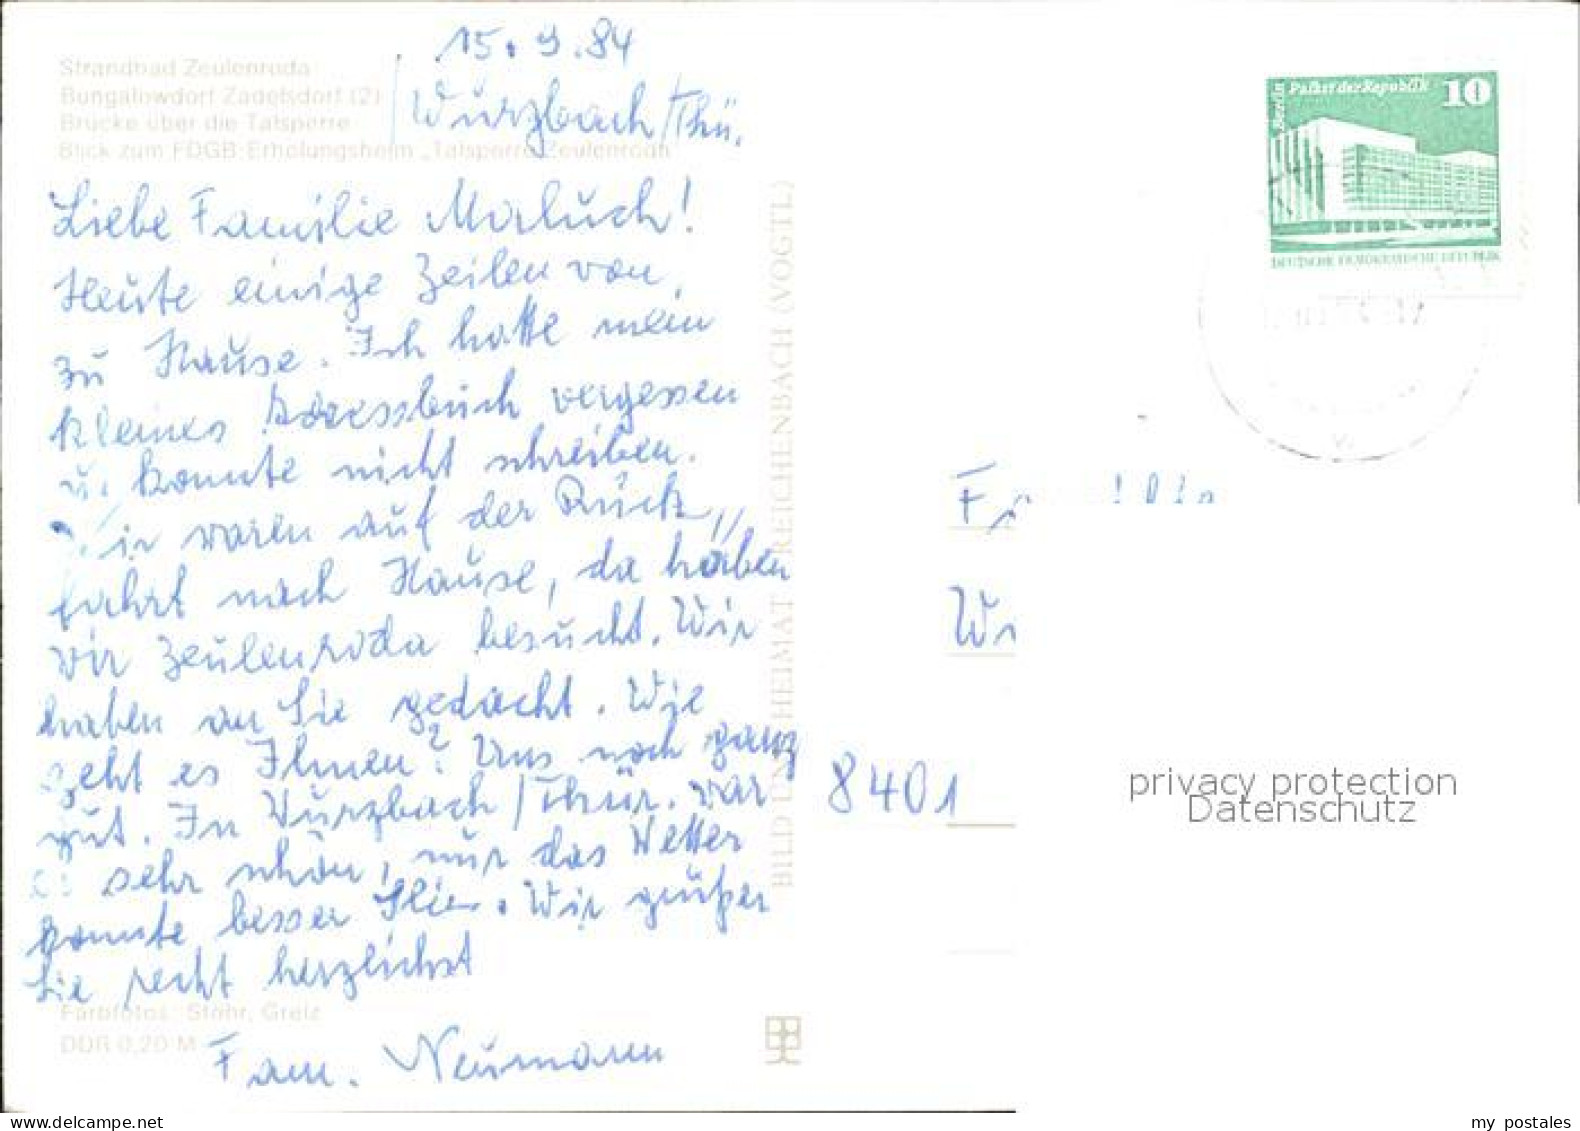 15.9.84
Wurzbach/Thü.
Strandbad Zeulenroda
Bungalowdorf Zadelsdorf (2)
Brücke über die Talsperre
Blick zum FDGB-Erholungsheim „Talsperre Zeulenroda“
Liebe Familie Morluch!
Heute einige Zeilen von
zu Hause. Ich hatte mein
kleines Adressbuch vergessen
u. konnte nicht schreiben.
Wir waren auf der Rück,,
fahrt nach Hause, da haben
wir Zeulenroda besucht. Wir
haben an Sie gedacht. Wie
geht es Ihnen? Uns noch ganz
gut. In Wurzbach/Thür. war
es sehr schön, nur das Wetter
konnte besser . Wir grüßen
Sie recht herzlichst
Fam. Neumann
Farbfotos: Stöhr, Greiz
DDR 0,20 M
BILD UND HEIMAT REICHENBACH (VOGTL)
Berlin Palast der Republik 10
DEUTSCHE DEMOKRATISCHE REPUBLIK
8401
privacy protection
Datenschutz
my postales